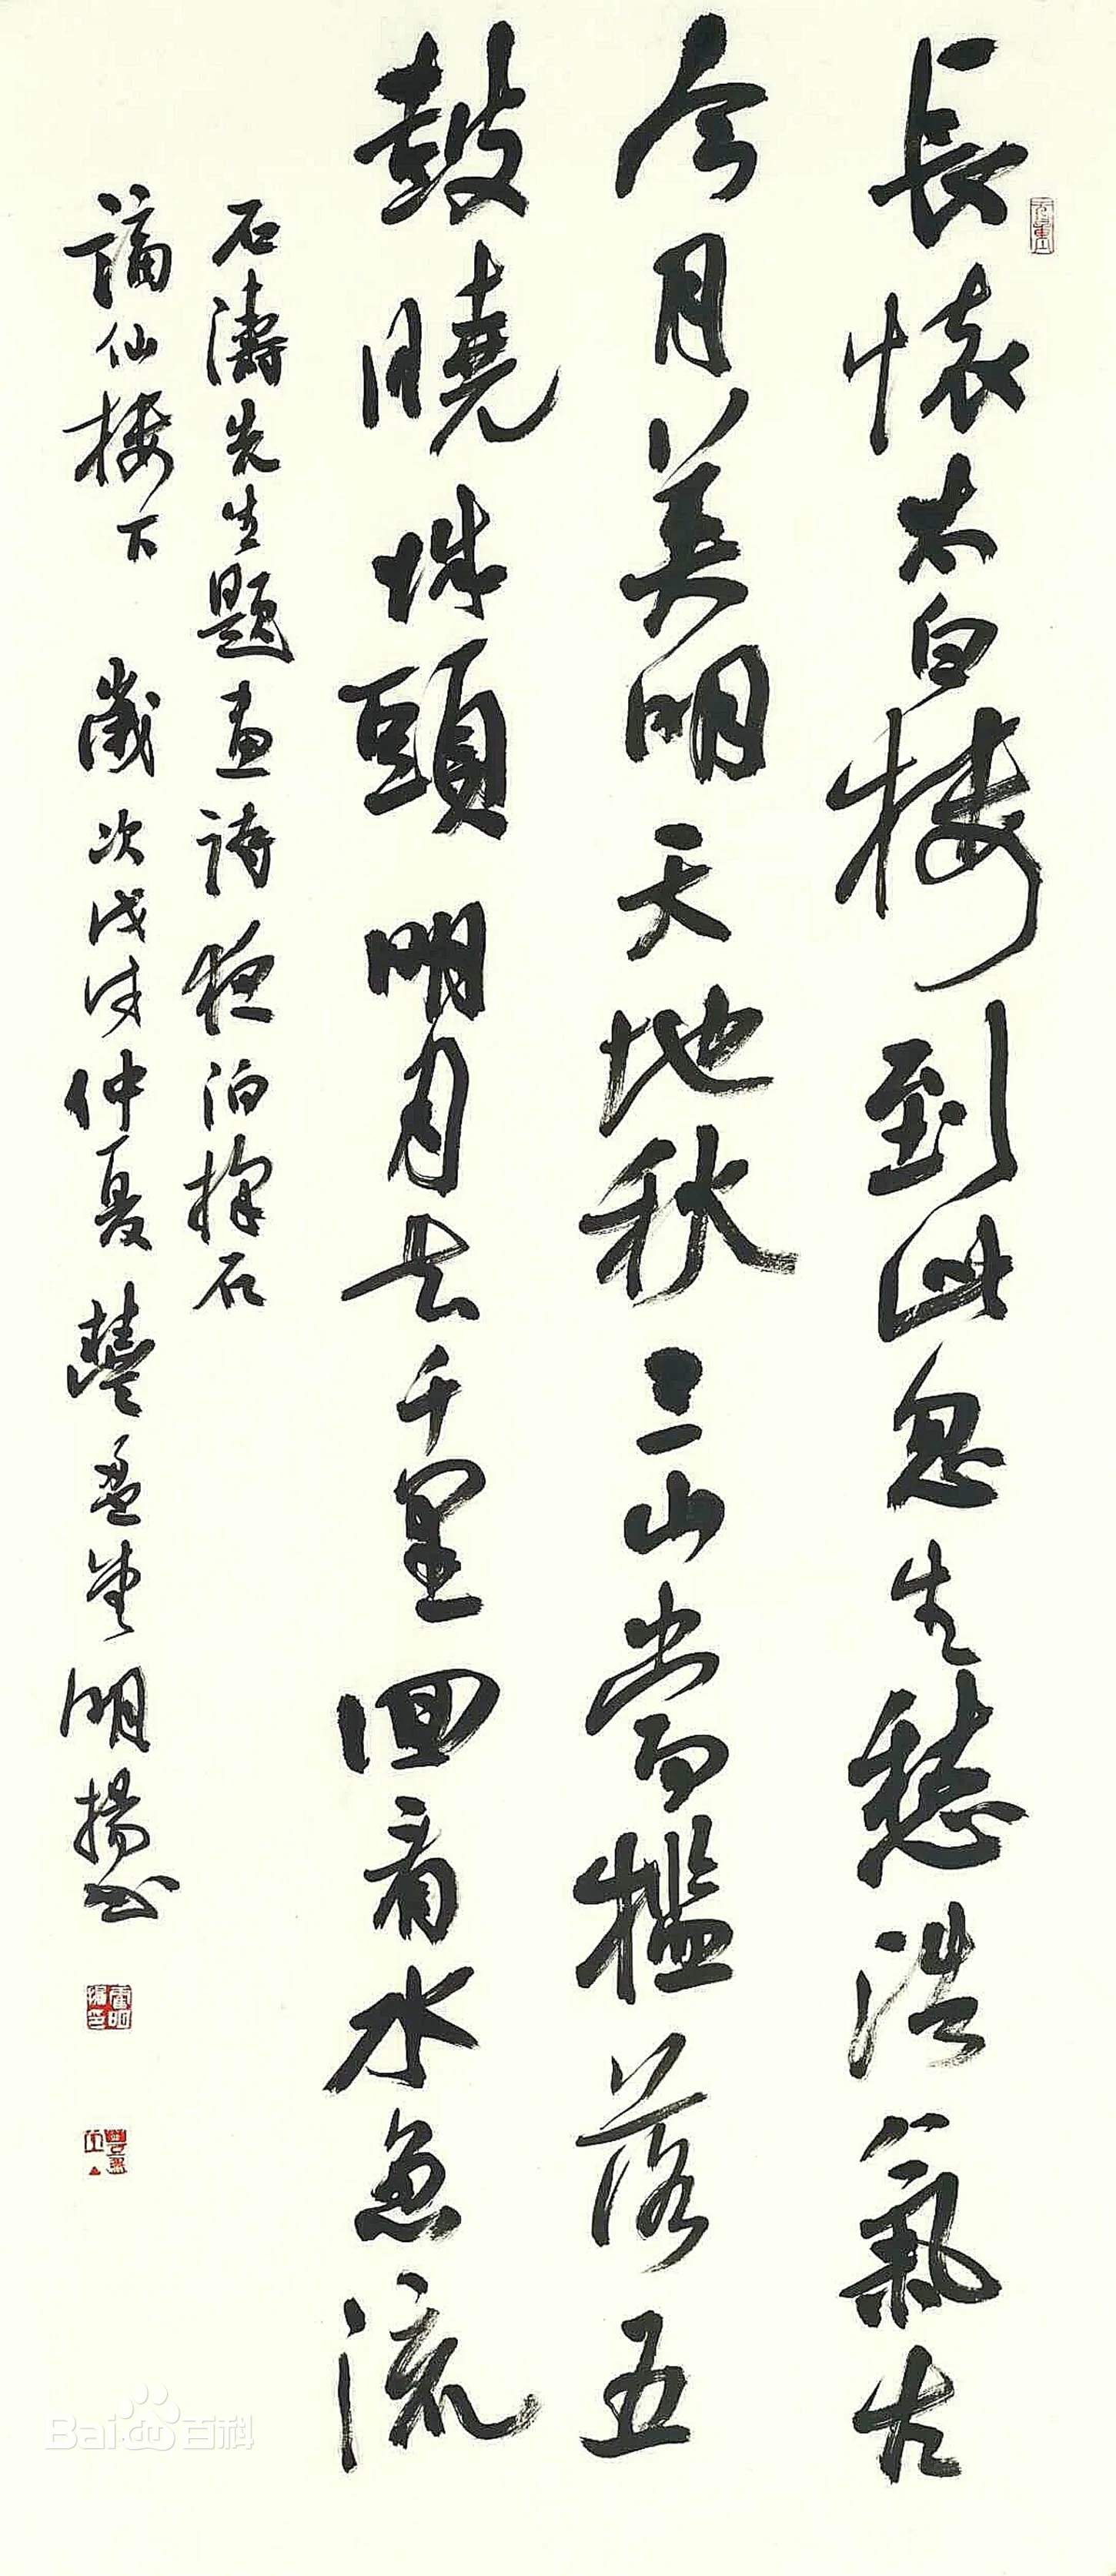 長懷太白樓到此忽生愁浩氣古
今月英明天地秋三山當檻落五
鼓曉城頭明月去千里回看水急流
石濤先生題畫詩夜泊採石
謫仙樓下 歲次戊戌仲夏豐盈堂明揚書
Bai 百科